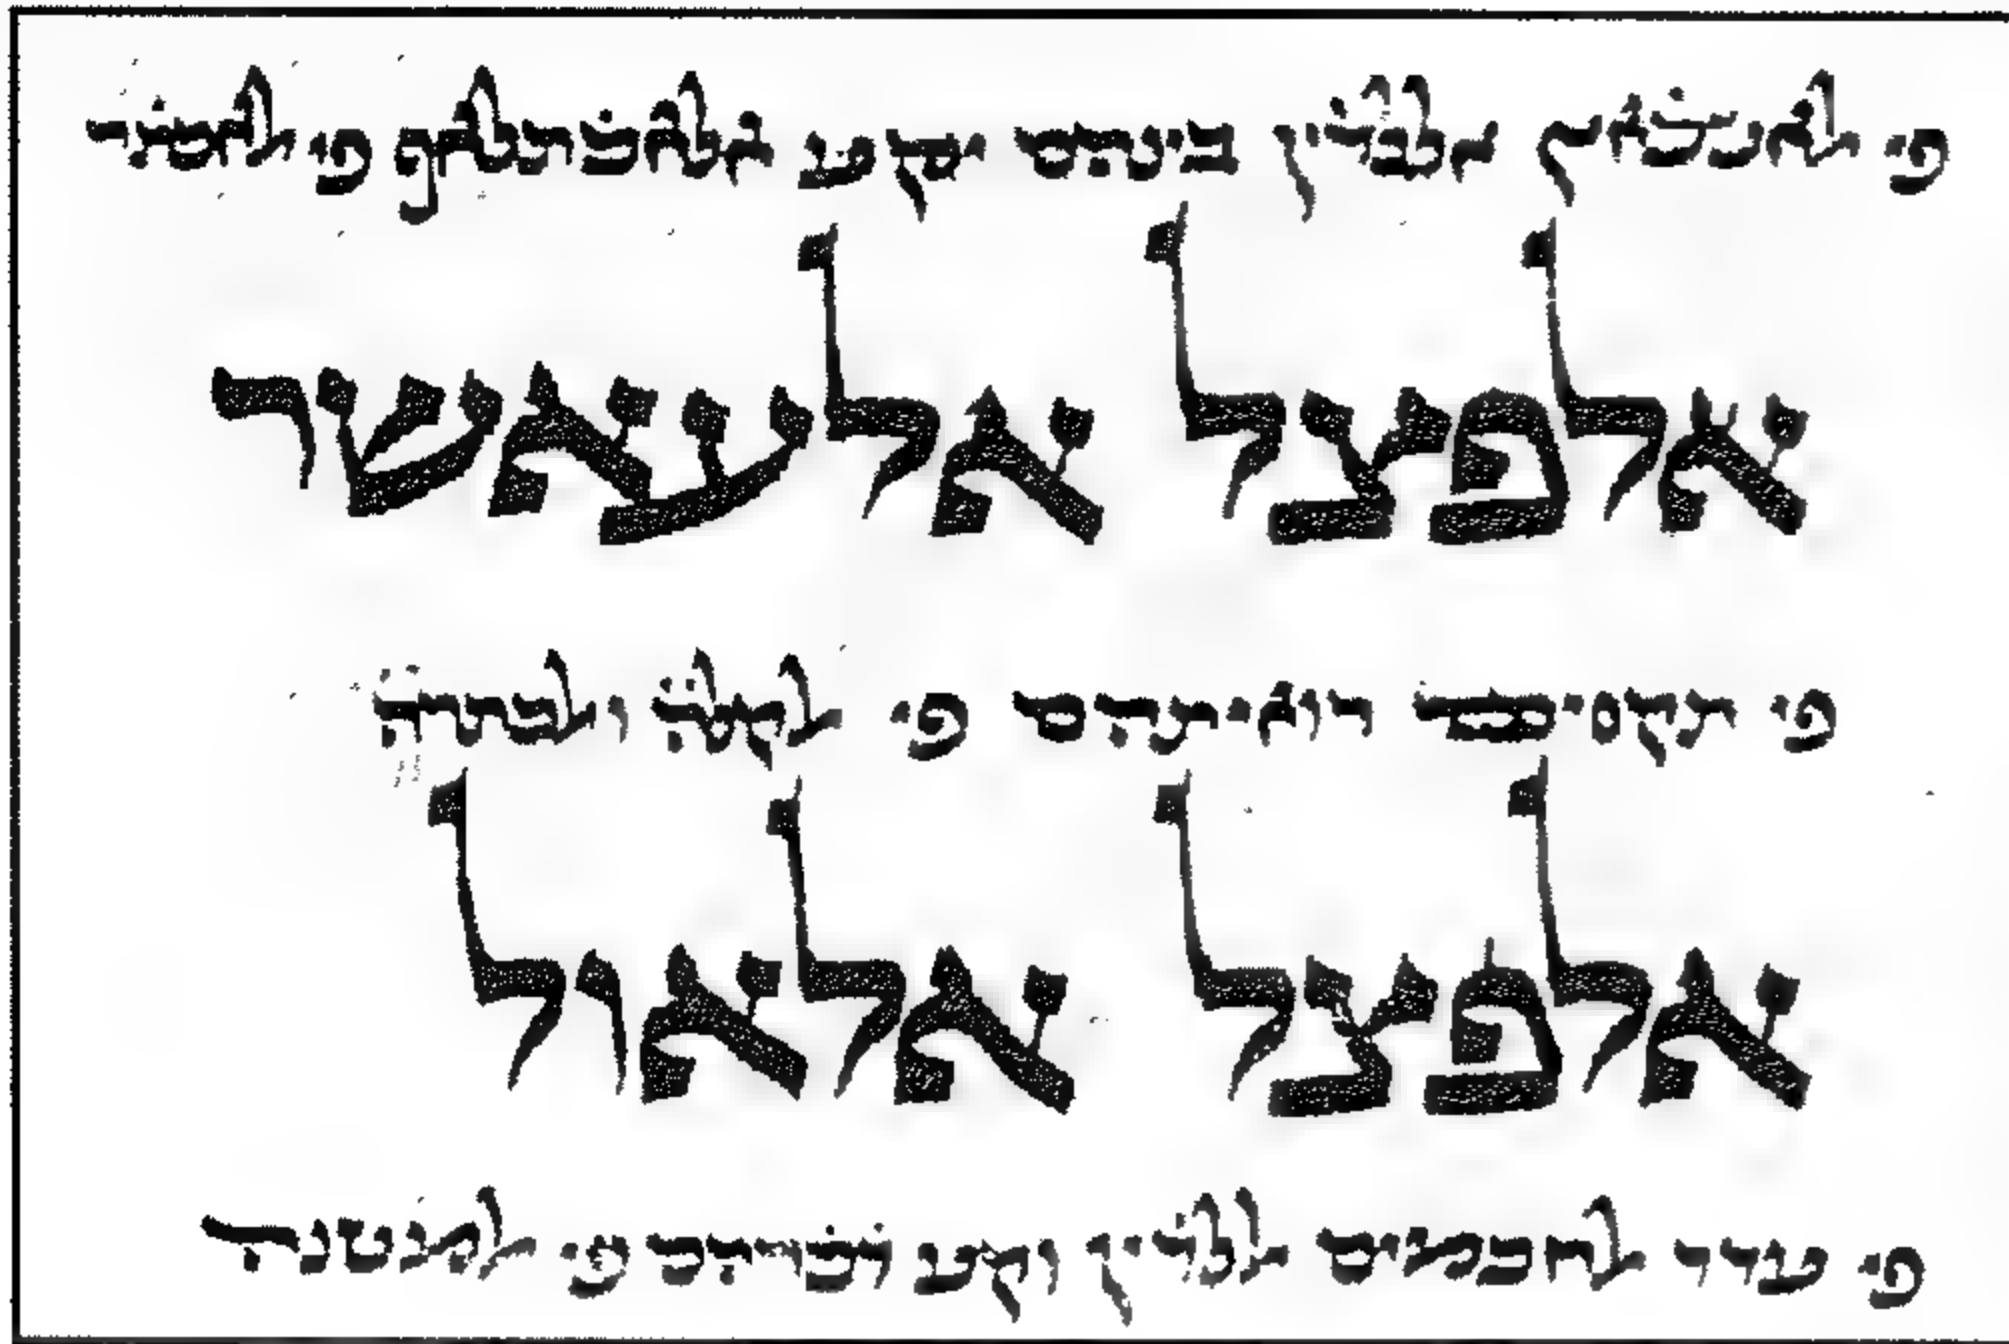 פי ﭏאשכׄאץ ﭏדׄין בינהם יקע ﭏאכׄתלאף פי ﭏאכתׄר
אלפצל אלעאשר
פי תקסים רואיתהם פי ﭏקלהׄ וﭏכתרהׄ
אלפצל אלאול
פי עדד ﭏחכמים ﭏלדׄין וקע דׄכרהם פי ﭏמשנה